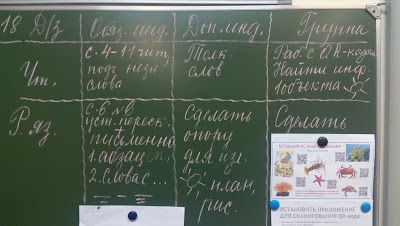 18 Д/з
Обяз. инд.
Доп. инд.
Группа
Чт.
с. 4-11 чит,
подг.
слова.
Толк.
слов
Раб. с QR-кодом
Найти инф.
1 объекта
Р. яз.
уст. переск.
письменно
1. абзац
2. Словас...
Сделать
опору
для изл.
план,
рис.
Сделать
УСТАНОВИТЬ ПРИЛОЖЕНИЕ
ДЛЯ СКАНИРОВАНИЯ QR-кода